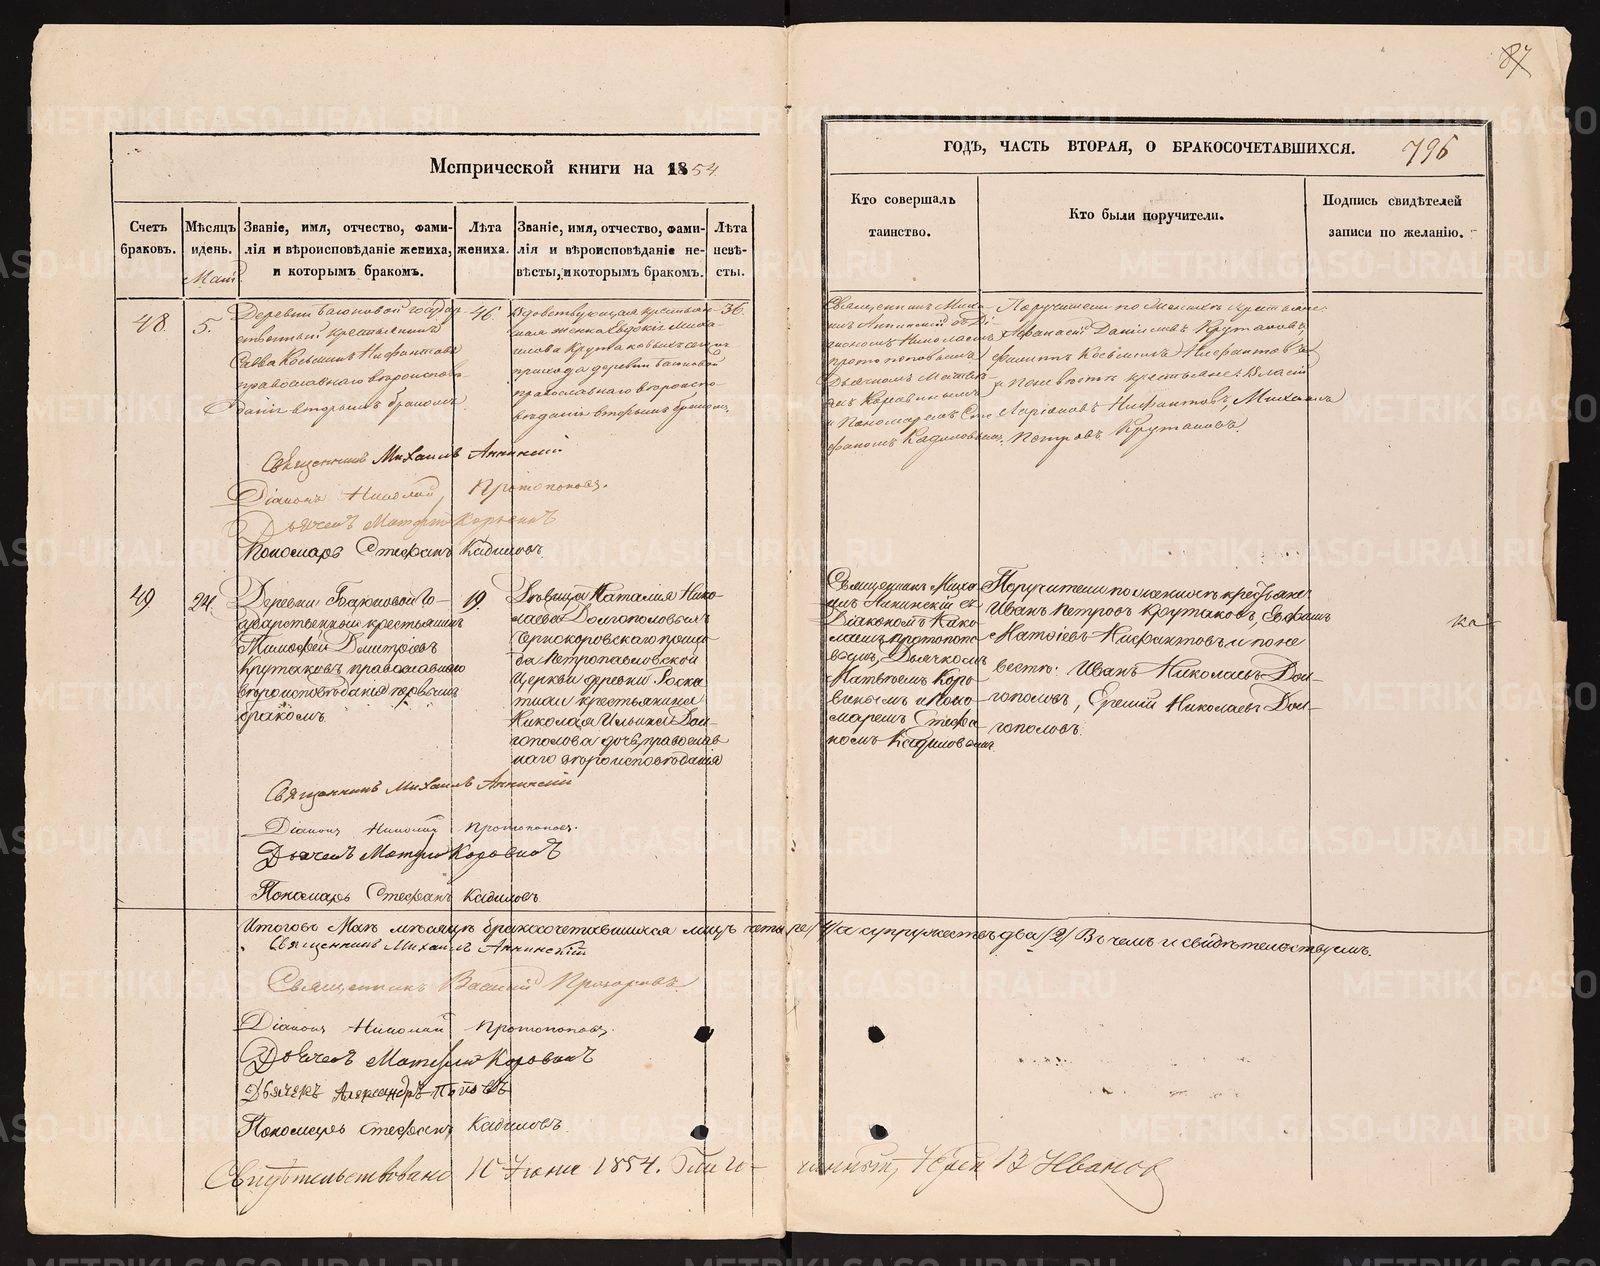 87
Метрической книги на 1854
ГОДЪ, ЧАСТЬ ВТОРАЯ, О БРАКОСОЧЕТАВШИХСЯ. 796
Счетъ браковъ.
Мѣсяцъ и день.
Званіе, имя, отчество, фами-
лія и вѣроисповѣданіе жениха,
и которымъ бракомъ.
Лѣта жениха.
Званіе, имя, отчество, фами-
лія и вѣроисповѣданіе не-
вѣсты, и которымъ бракомъ.
Лѣта невѣ-
сты.
Кто совершалъ
таинство.
Кто были поручители.
Подпись свидѣтелей
записи по желанію.
Май
48.
5.
Деревни Баюновой государ-
ственный крестьянинъ
Савва Косьминъ Нифантовъ
православнаго вѣроисповѣ-
данія вторымъ бракомъ
46.
Вдовствующая крестьян-
ская женка Евдокія Миха-
илова Крутаковыхъ сего
прихода деревни Баюновой
православнаго вѣроиспо-
вѣданія вторымъ бракомъ
36.
Священникъ Миха-
илъ Аннинскій съ Ді-
акономъ Николаемъ
Протопоповымъ
Дьячкомъ Матвѣ-
емъ Коровинымъ
и Пономаремъ Сте-
фаномъ Кадиловымъ.
Поручители по женихѣ крестьяне:
Афанасій Даниловъ Крутаковъ,
Филиппъ Косьминъ Нифантовъ
и по невѣстѣ крестьяне: Власій
Ларіоновъ Нифантовъ, Михаилъ
Петровъ Крутаковъ.
Священникъ Михаилъ Аннинскій
Діаконъ Николай Протопоповъ.
Дьячекъ Матфей Коровинъ
Пономарь Стефанъ Кадиловъ.
49
24.
Деревни Баюновой Го-
сударственный крестьянинъ
Тимофей Димитріевъ
Крутаковъ, православнаго
вѣроисповѣданія первымъ
бракомъ.
19.
Дѣвица Наталія Нико-
лаева Долгополовыхъ
Чернокоровскаго прихо-
да Петропавловской
Церкви деревни
крестьянина
Николая Ильина Дол-
гополова дочь, православ-
наго вѣроисповѣданія
Священникъ Миха-
илъ Аннинскій съ
Діакономъ Нико-
лаемъ Протопопо-
вымъ, Дьячкомъ
Матвѣемъ Коро-
винымъ и Поно-
маремъ Стефа-
номъ Кадиловымъ.
Поручители по женихѣ крестьяне:
Иванъ Петровъ Крутаковъ, Ефимъ
Матвіевъ Нифантовъ и по не
вѣстѣ: Иванъ Николаевъ Дол-
гополовъ, Еремій Николаевъ Дол-
гополовъ.
Священникъ Михаилъ Аннинскій
Діаконъ Николай Протопоповъ.
Дьячекъ Матфей Коровинъ
Пономарь Стефанъ Кадиловъ
Итого въ Маѣ мѣсяцѣ бракосочетавшихся лицъ четыре /4/ а супружествъ два /2/ Въ чемъ и свидѣтельствуемъ.
Священникъ Михаилъ Аннинскій
Священникъ Василій Прозоровъ
Діаконъ Николай Протопоповъ.
Дьячекъ Матфей Коровинъ
Дьячекъ Александръ Поповъ
Пономарь Стефанъ Кадиловъ.
Свидѣтельствовано Іюня 1854. Благо- чинный, Іерей В Ивановъ
METRIKI.GASO-URAL.RU